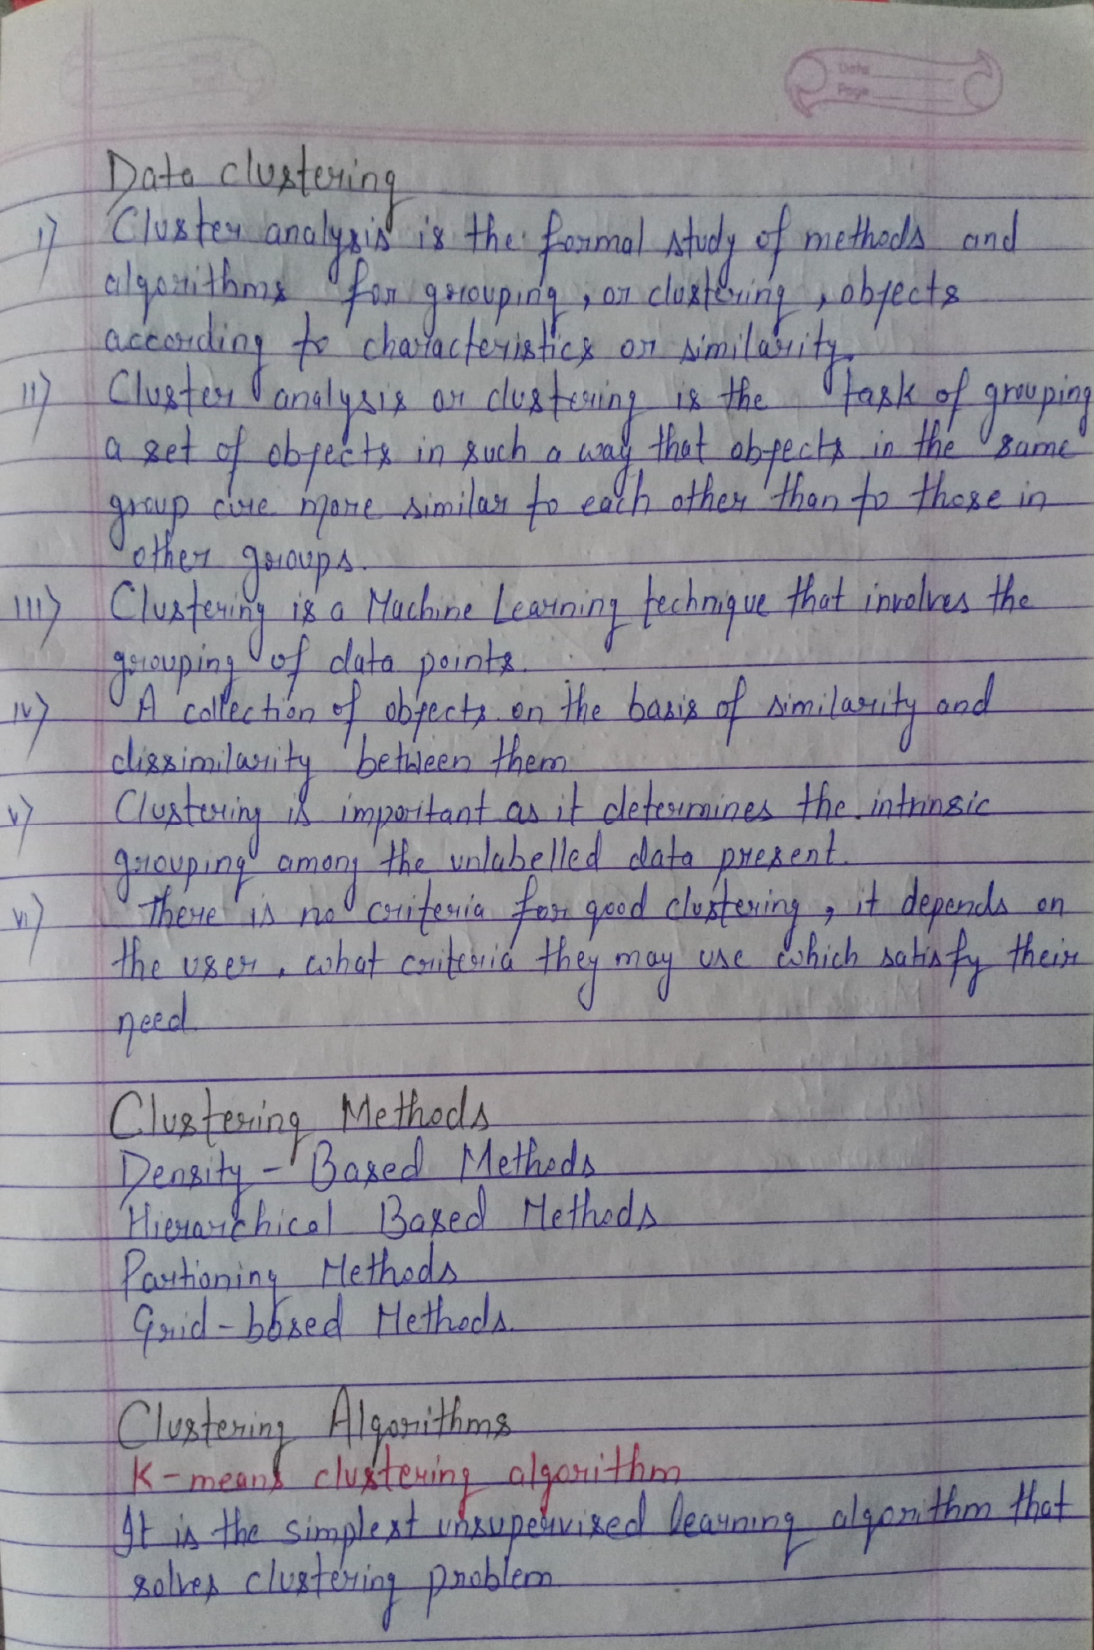 Date
Page
Data clustering
i) Cluster analysis is the formal study of methods and
algorithms for grouping, or clustering, objects
according to characteristics or similarity.
ii) Cluster analysis or clustering is the task of grouping
a set of objects in such a way that objects in the same
group are more similar to each other than to those in
other groups.
iii) Clustering is a Machine Learning technique that involves the
grouping of data points.
iv) A collection of objects on the basis of similarity and
dissimilarity between them
v) Clustering is important as it determines the intrinsic
grouping among the unlabelled data present.
vi) There is no criteria for good clustering, it depends on
the user, what criteria they may use which satisfy their
need.
Clustering Methods
Density - Based Methods
Hierarchical Based Methods
Partioning Methods
Grid-based Methods.
Clustering Algorithms
K-means clustering algorithm
It is the simplest unsupervised learning algorithm that
solves clustering problem